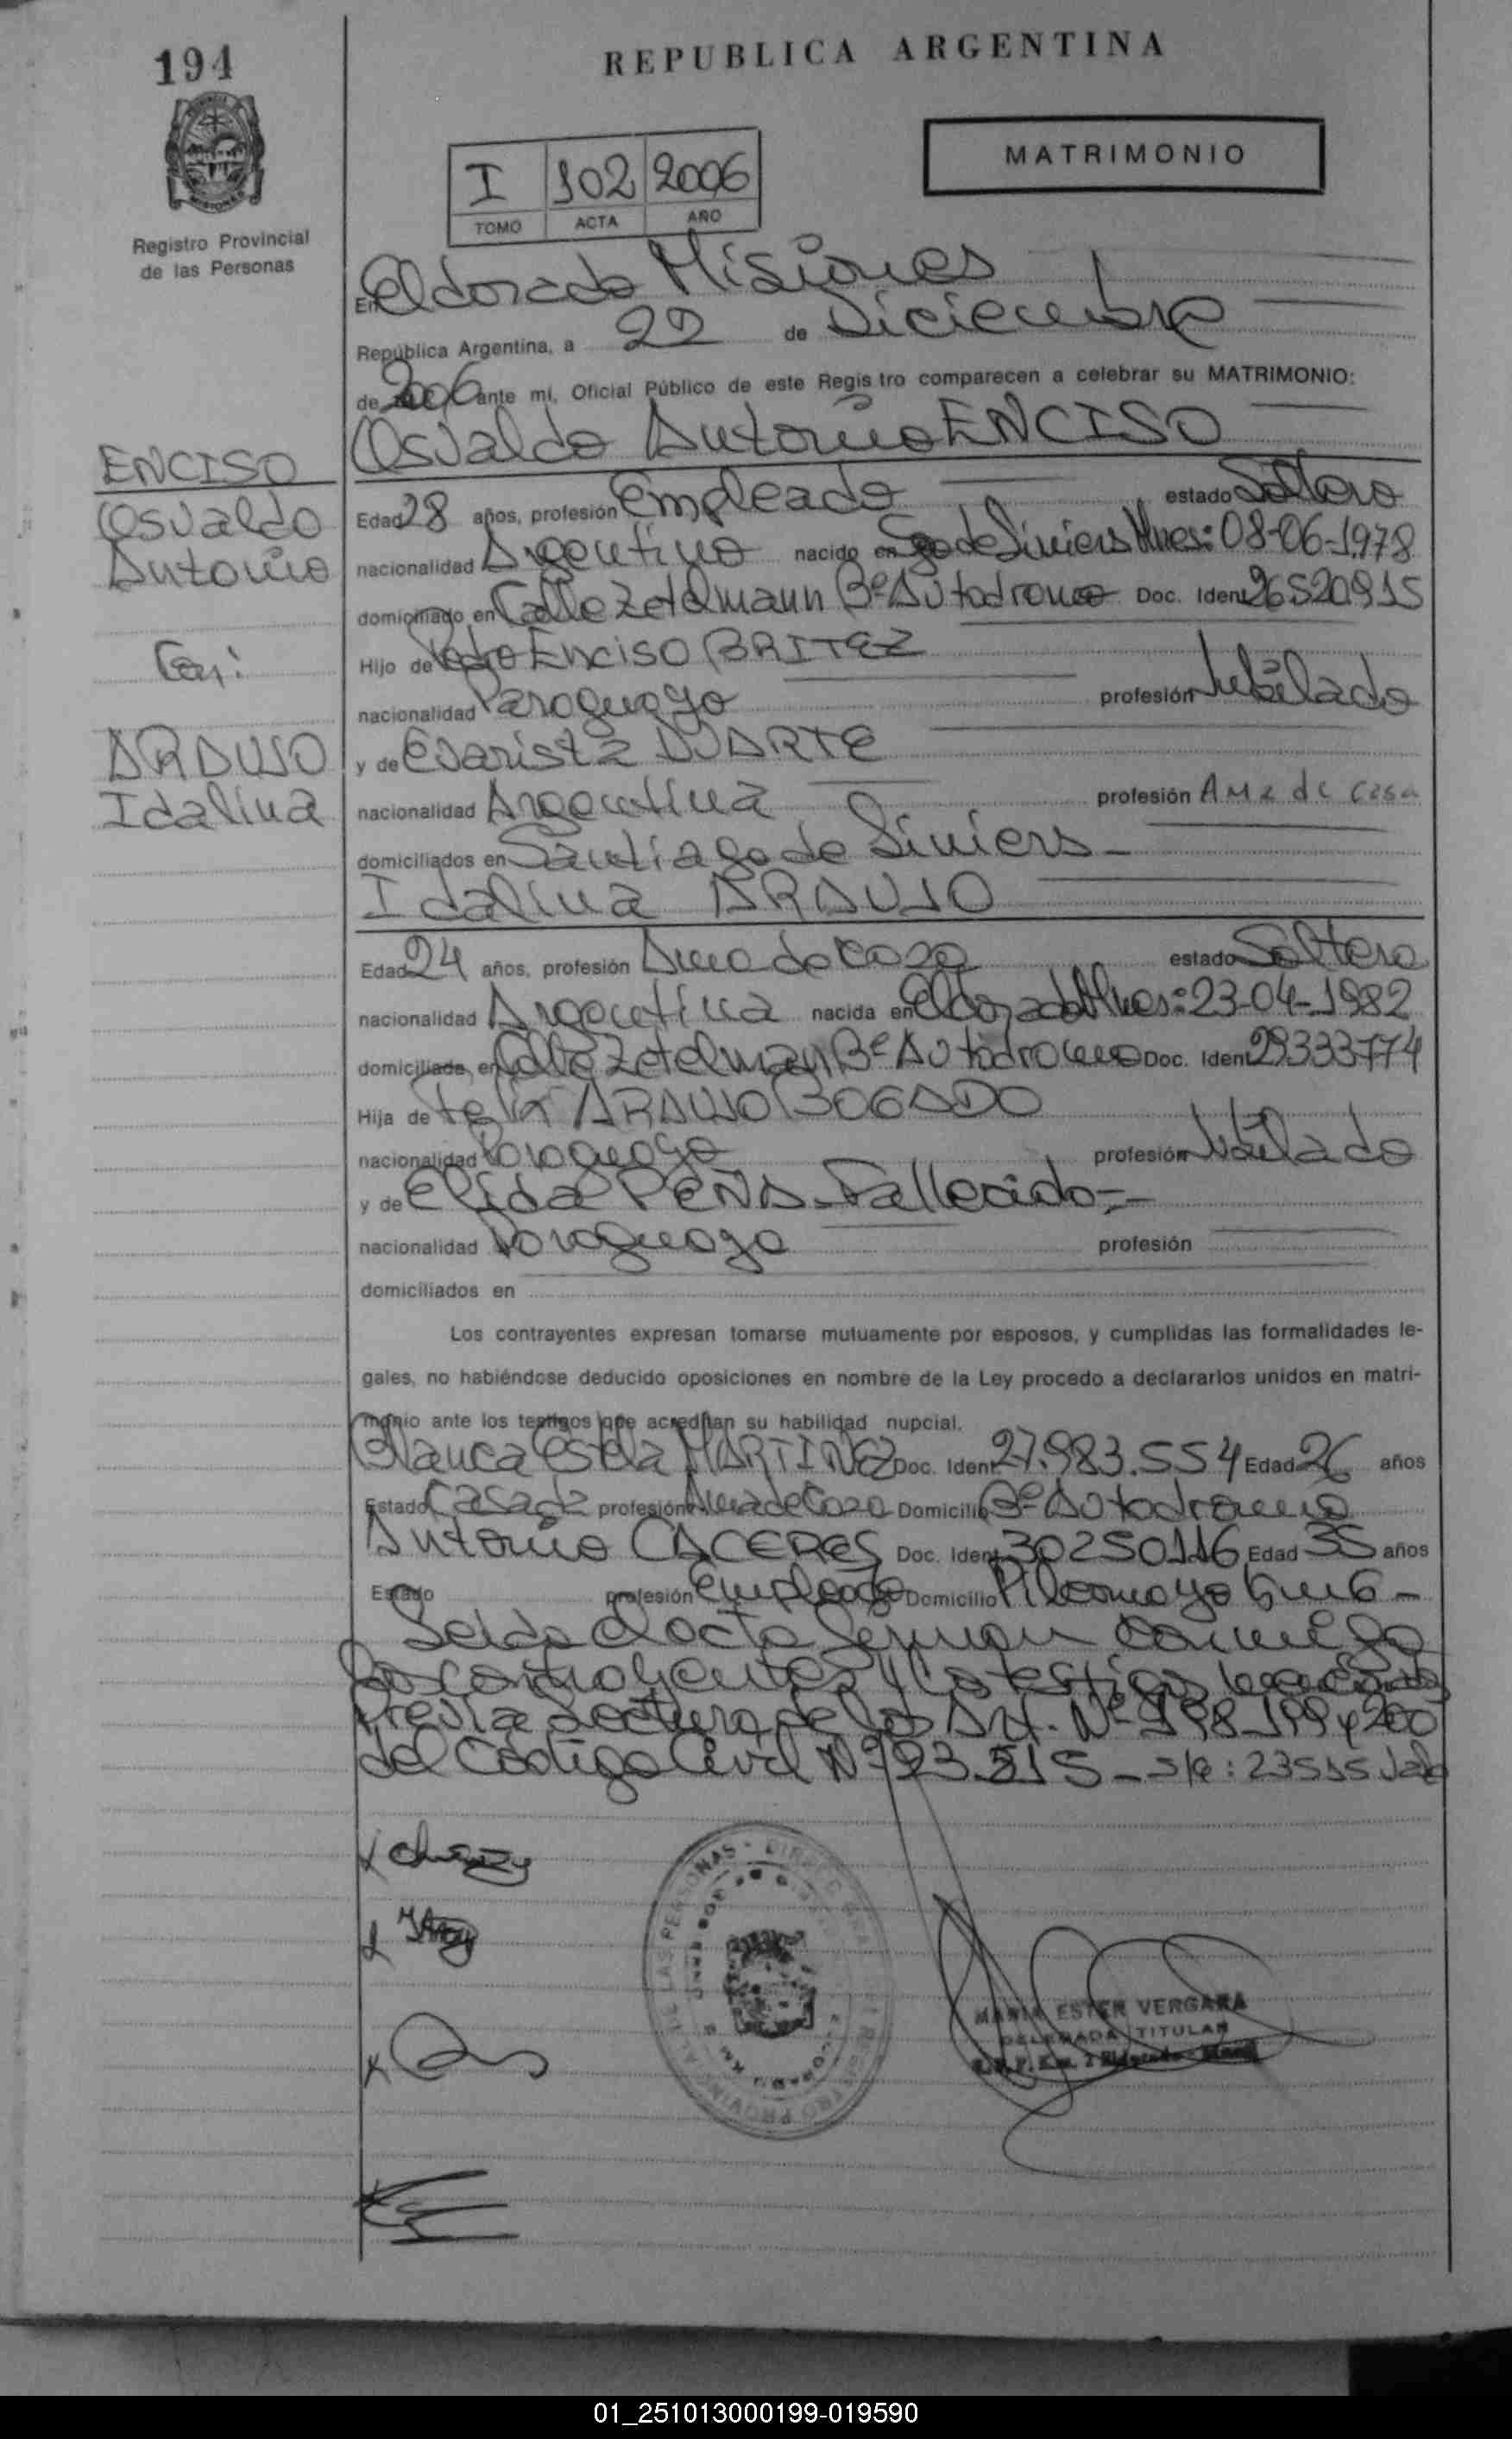 194
REPUBLICA ARGENTINA
Registro Provincial
de las Personas
MATRIMONIO
I 102 2006
TOMO ACTA AÑO
En Eldorado Misiones
República Argentina, a 22 de Diciembre
de 2006 ante mí, Oficial Público de este Registro comparecen a celebrar su MATRIMONIO:
Osvaldo Antonio ENCISO
ENCISO
Osvaldo
Antonio
Con:
ARAUJO
Idalina
Edad 28 años, profesión Empleado estado Soltero
nacionalidad Argentino nacido en Sgo de Liniers Mnes: 08-06-1978
domiciliado en Calle Zetelmann Bº Autodromo Doc. Ident 26520915
Hijo de Pedro Enciso BRITEZ
nacionalidad Paraguayo profesión Jubilado
y de Evarista DUARTE
nacionalidad Argentina profesión Ama de Casa
domiciliados en Santiago de Liniers
Idalina ARAUJO
Edad 24 años, profesión Ama de Casa estado Soltera
nacionalidad Argentina nacida en Eldorado Mnes: 23-04-1982
domiciliada en Calle Zetelman Bº Autodromo Doc. Ident 29333774
Hija de Felix ARAUJO BOGADO
nacionalidad Paraguayo profesión Jubilado
y de Elida PEÑA - Fallecida -
nacionalidad Paraguaya profesión
domiciliados en
Los contrayentes expresan tomarse mutuamente por esposos, y cumplidas las formalidades le-
gales, no habiéndose deducido oposiciones en nombre de la Ley procedo a declararlos unidos en matri-
monio ante los testigos que acreditan su habilidad nupcial.
Blanca Estela MARTINEZ Doc. Ident 27.983.554 Edad 26 años
Estado Casada profesión Ama de Casa Domicilio Bº Autodromo
Antonio CACERES Doc. Ident 30250116 Edad 35 años
Estado profesión Empleado Domicilio Pilcomayo km 6 -
Leida el acta firman conmigo
los contrayentes y los testigos
Previa Lectura de los Art. Nº 198-199 y 200
del Codigo Civil Nº 23.515 - s/r: 23515 Vale
MARIA ESTER VERGARA
DELEGADA TITULAR
01_251013000199-019590